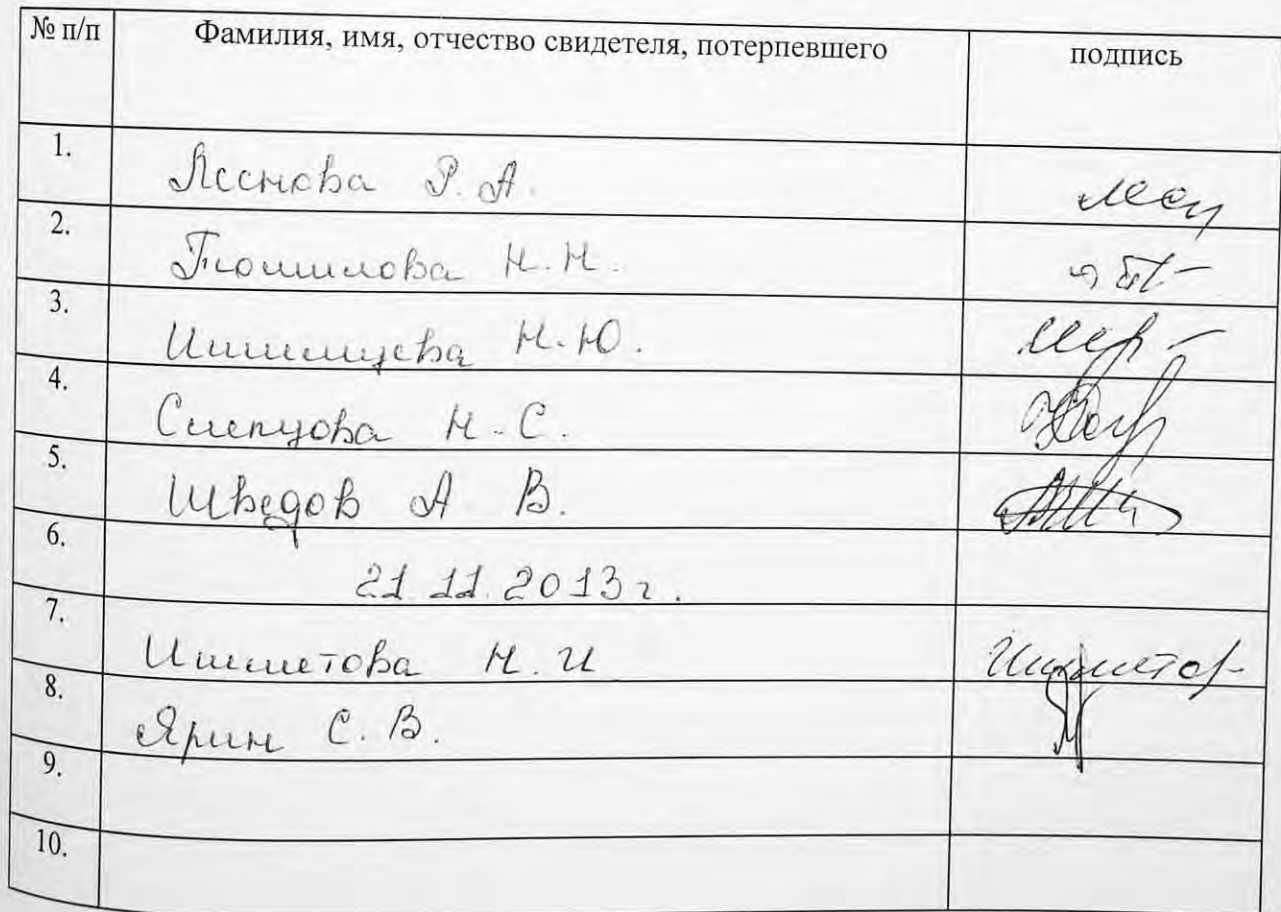 № п/п Фамилия, имя, отчество свидетеля, потерпевшего подпись
1. Леснова Р. А.
2. Тюшилова Н. Н.
3. Н. Ю.
4. Слепцова Н. С.
5. Шведов А В.
6. 21.11.2013 г.
7. Ишметова Н. И
8. Ярин С. В.
9.
10.